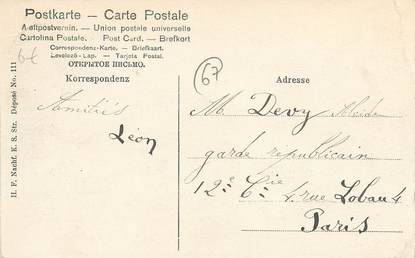 Postkarte – Carte Postale
Weltpostverein. – Union postale universelle
Cartolina Postale. Post Card. – Brefkort
Correspondenz-Karte. – Briefkaart.
Levelező-Lap. – Tarjeta Postal.
ОТКРЫТОЕ ПИСЬМО.
Korrespondenz
Adresse
67
H. F. Nachf. K. S. Str. Déposé No. 111
Amitiés
Léon
M. Devy
garde républicain
12e Cie 4 rue Lobau 4
Paris